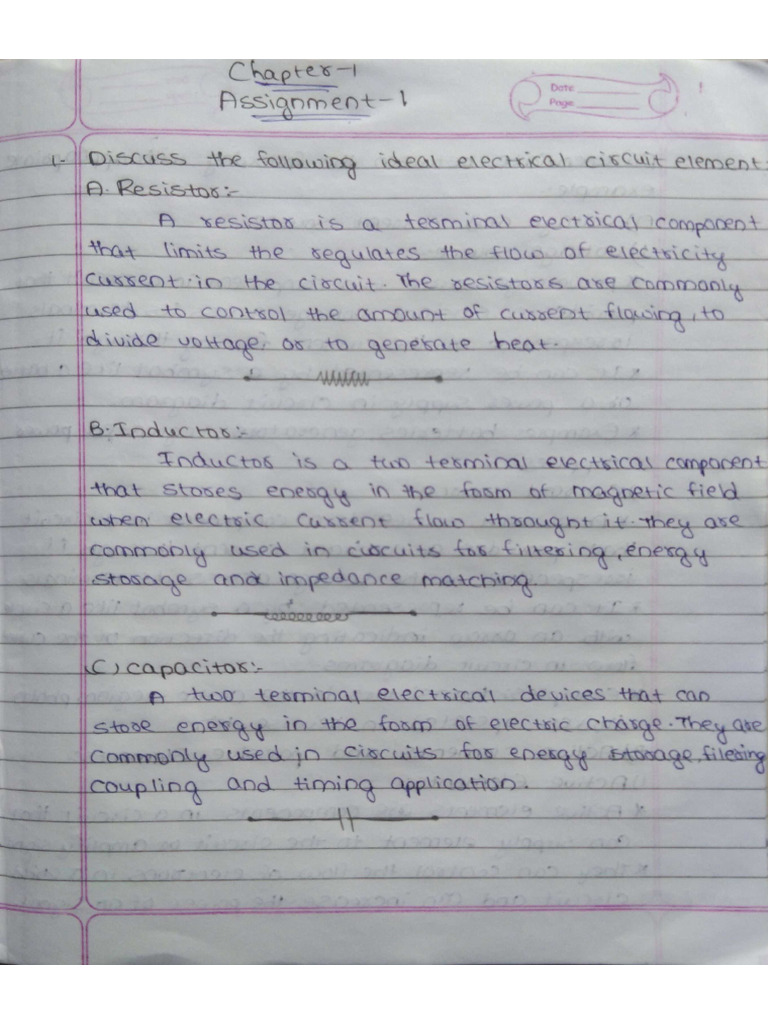 Chapter-1
Assignment-1
Date
Page
1. Discuss the following ideal electrical circuit element:
A. Resistor:-
A resistor is a terminal electrical component
that limits the regulates the flow of electricity
current in the circuit. The resistors are commonly
used to control the amount of current flowing, to
divide voltage, or to generate heat.
B. Inductor:-
Inductor is a two terminal electrical component
that stores energy in the form of magnetic field
when electric current flow throught it. They are
commonly used in circuits for filtering, energy
storage and impedance matching
C) Capacitor:-
A two terminal electrical devices that can
store energy in the form of electric charge. They are
commonly used in circuits for energy storage, filering
coupling and timing application.